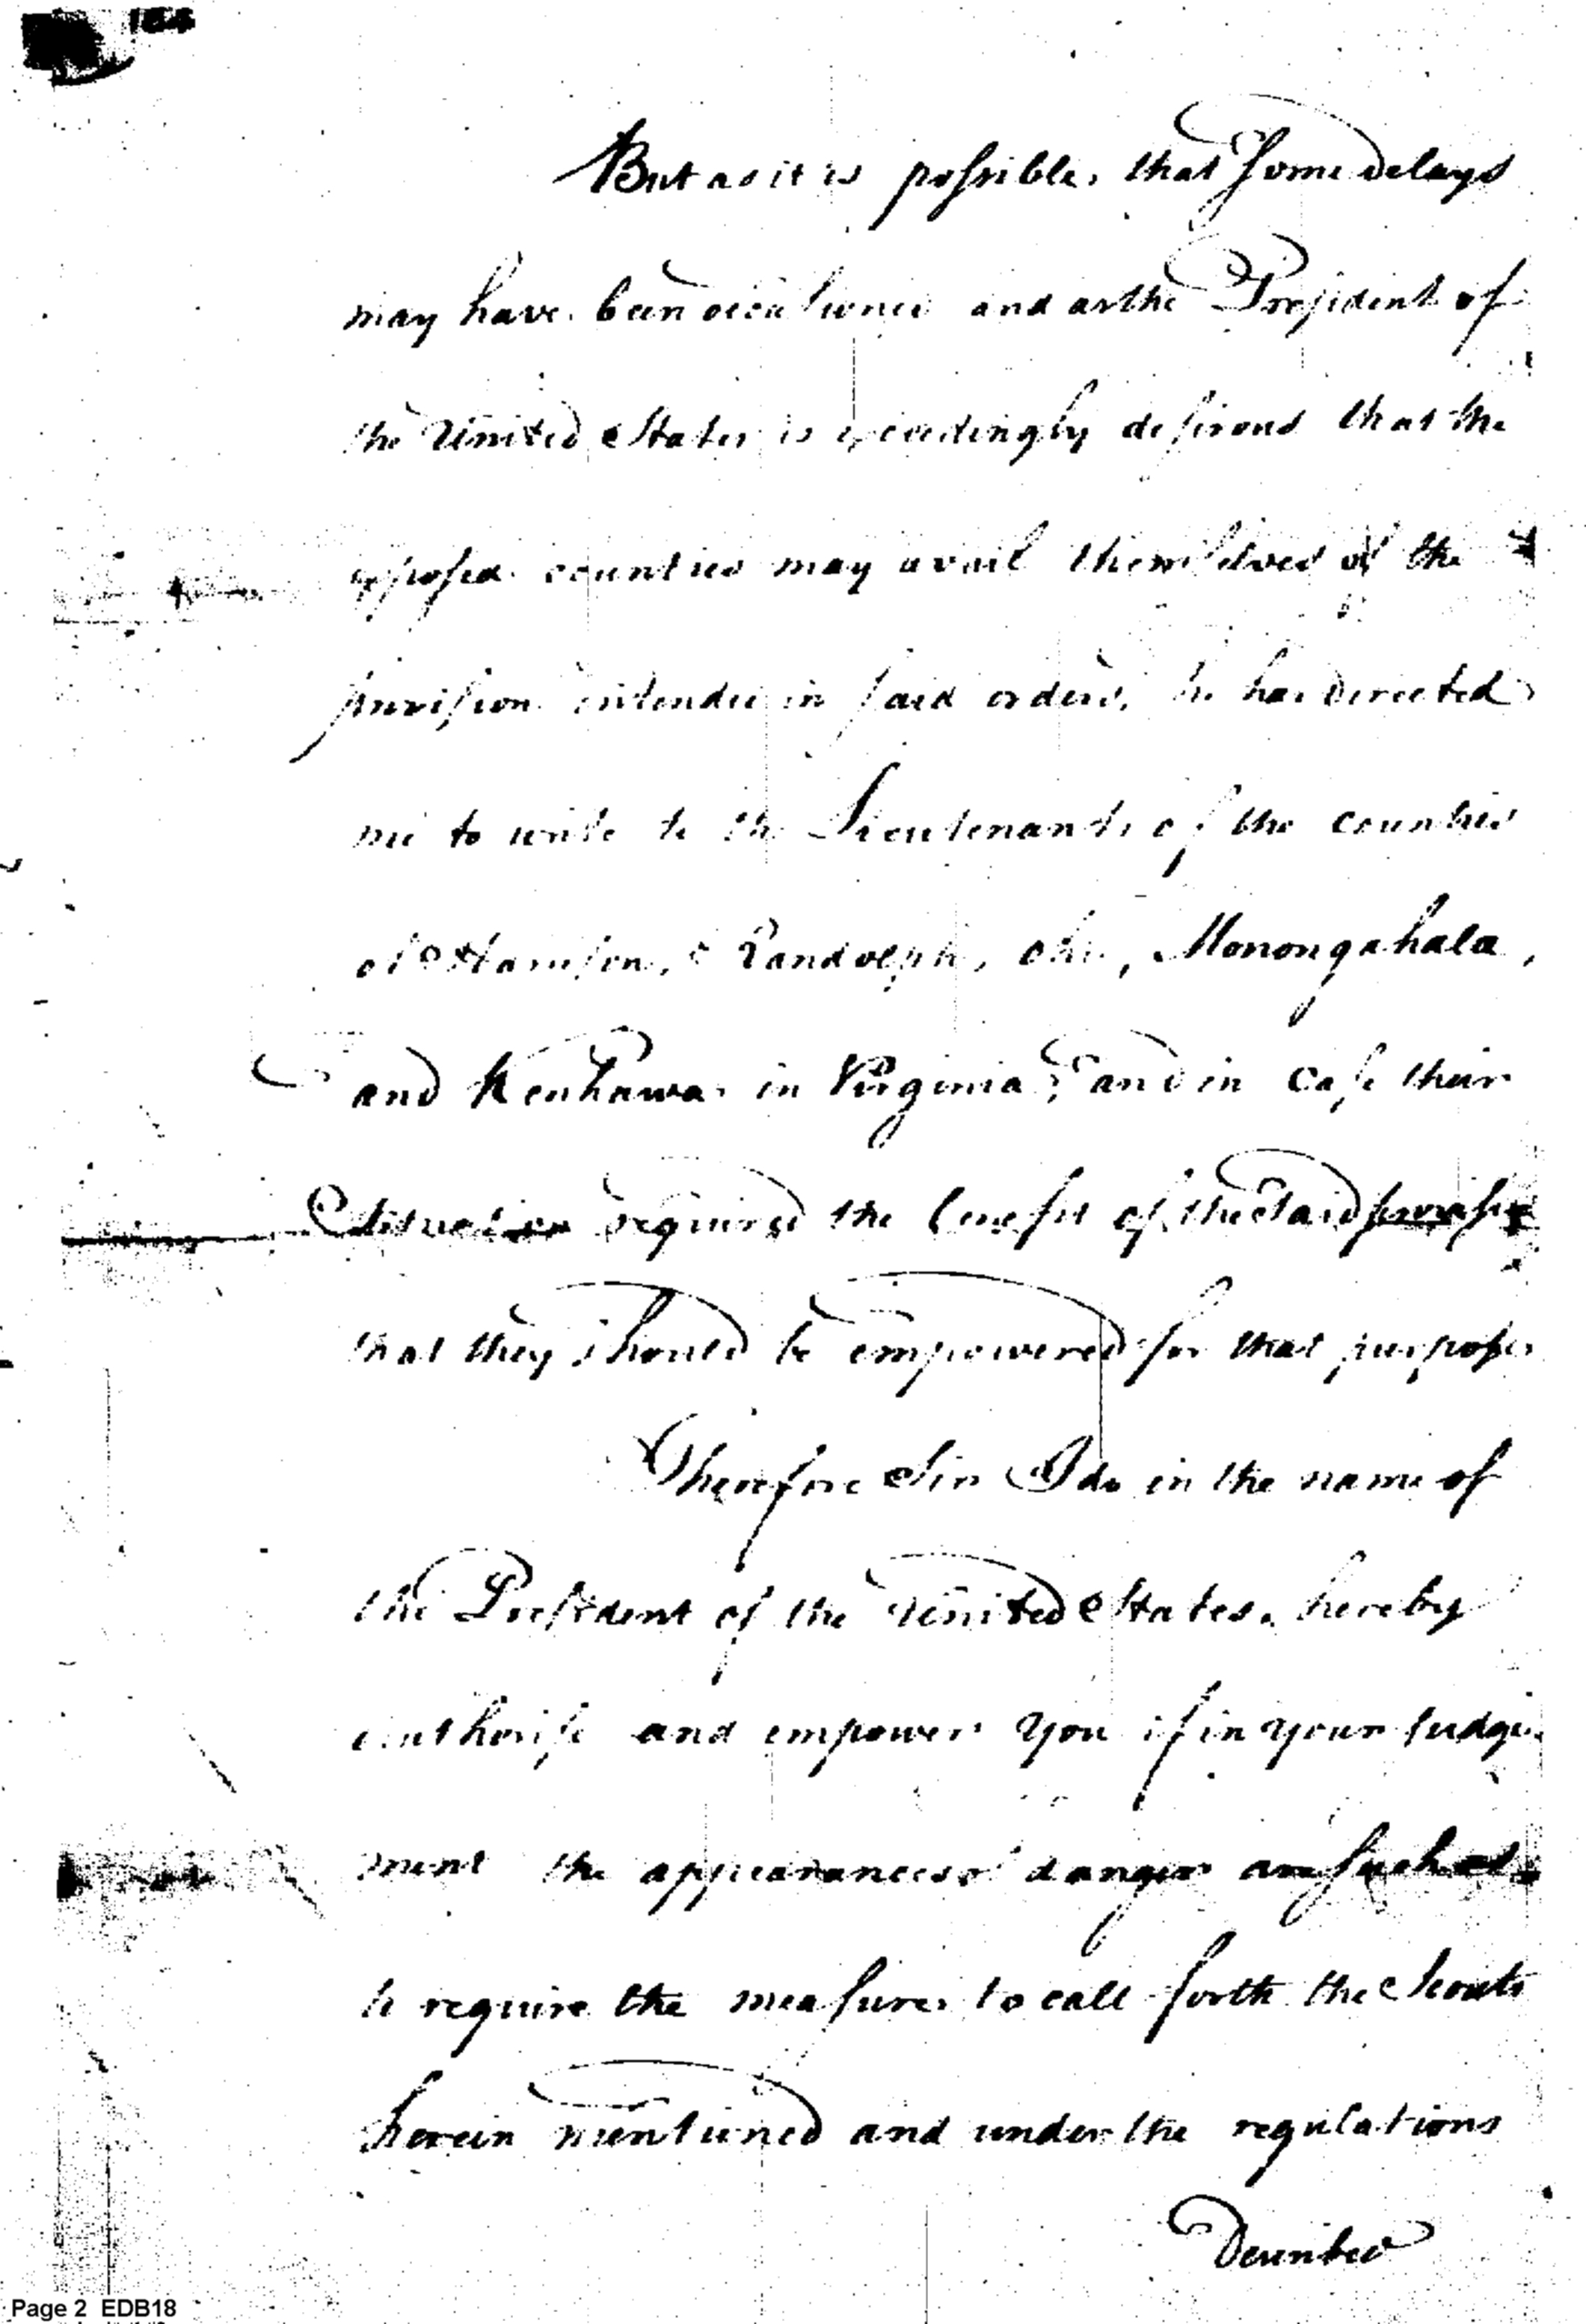 But as it is possible, that some delays
may have been occasioned and as the President of
the United States is exceedingly desirous that the
exposed counties may avail themselves of the
provision intended in said orders, he has directed
me to write to the Lieutenants of the counties
of Harrison, Randolph, Ohio, Monongahala,
and Kenhawa in Virginia, and in case their
Situation required the benefit of the said provision
that they should be empowered for that purpose
Therefore Sir I do in the name of
the President of the United States, hereby
authorise and empower you if in your Judge
ment the appearances of danger are such as
to require the measure, to call forth the Scouts
herein mentioned and under the regulations
Described
Page 2 EDB18